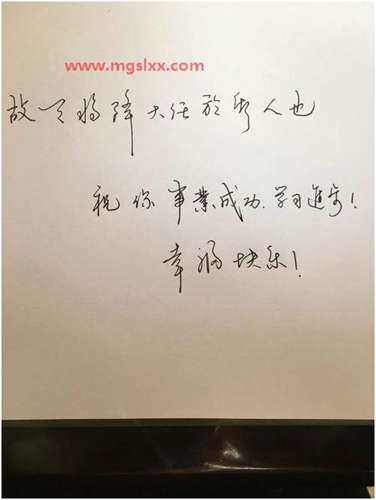 www.mgslxx.com
故天将降大任於斯人也
祝你事業成功.学习進步!
幸福快乐!